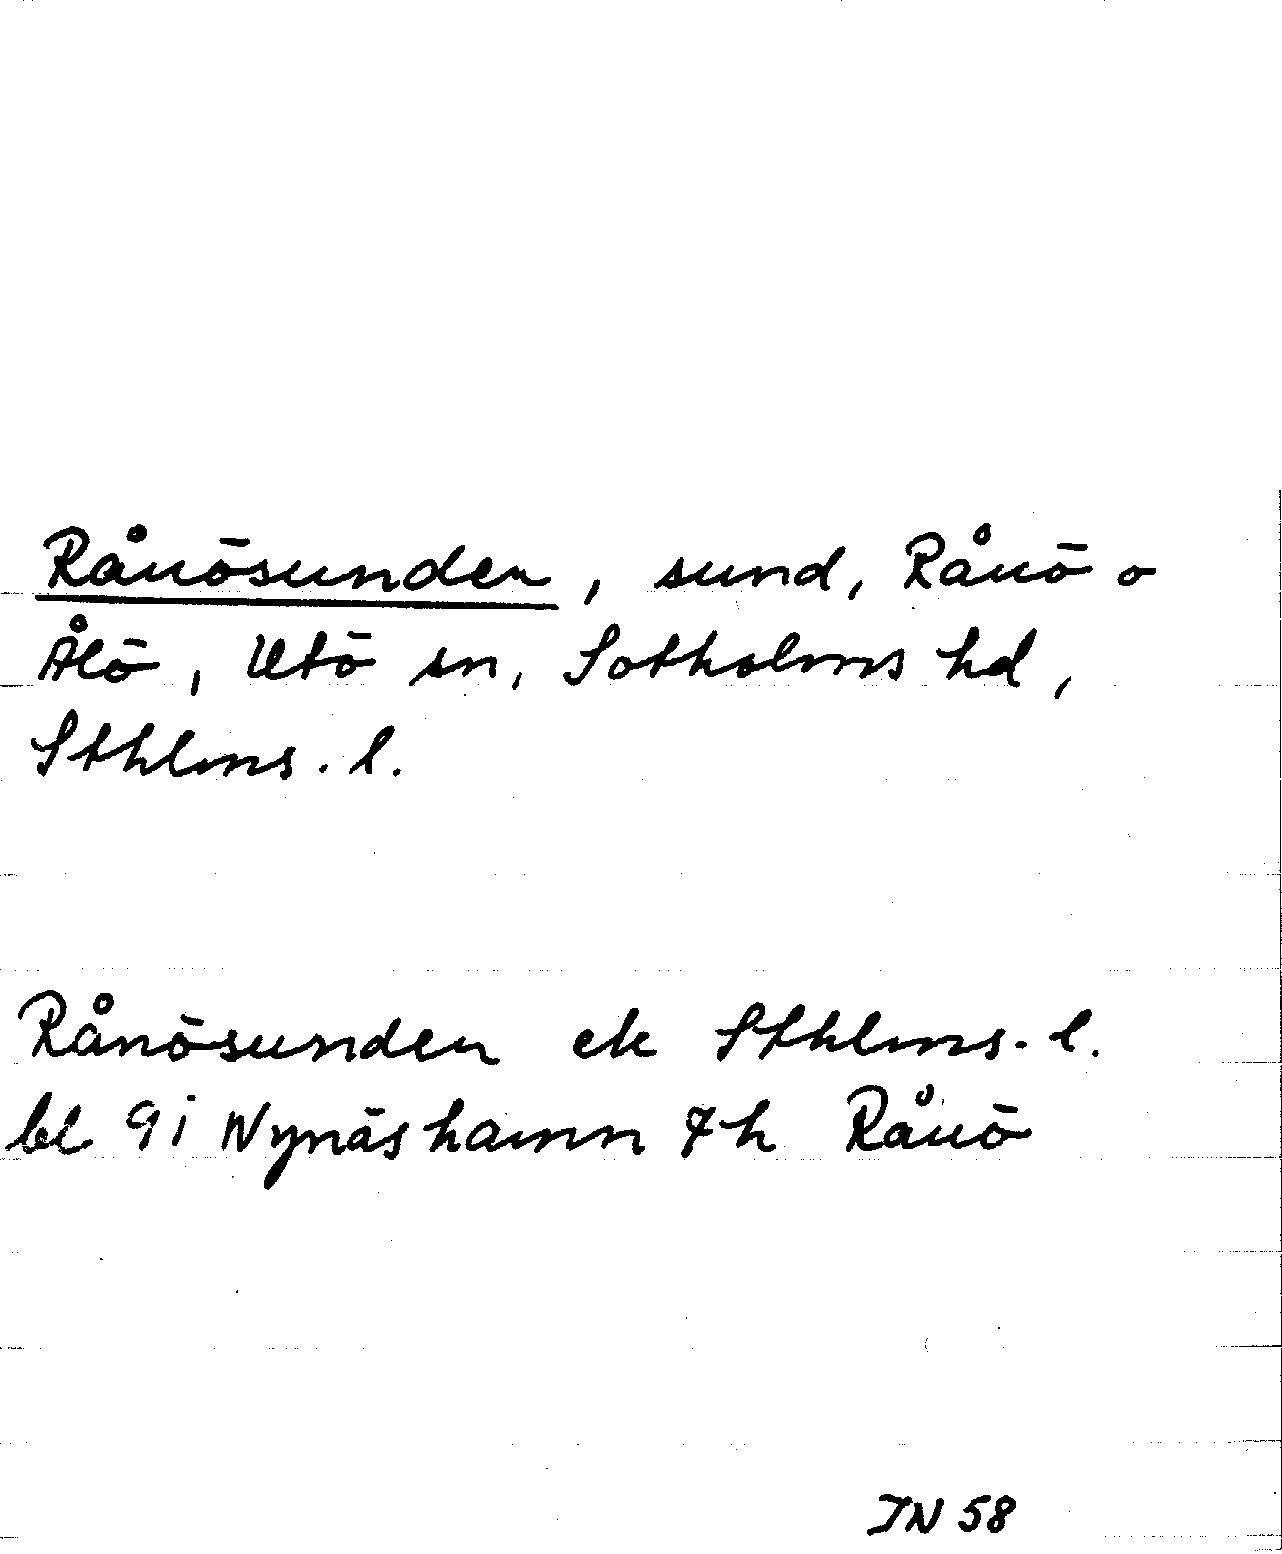 Rånösunden, sund, Rånö o
Ålö, Utö sn, Sotholms hd,
Sthlms. l.
Rånösunden ek Sthlms. l.
bl 9 i Nynäshamn 7h Rånö
JN 58